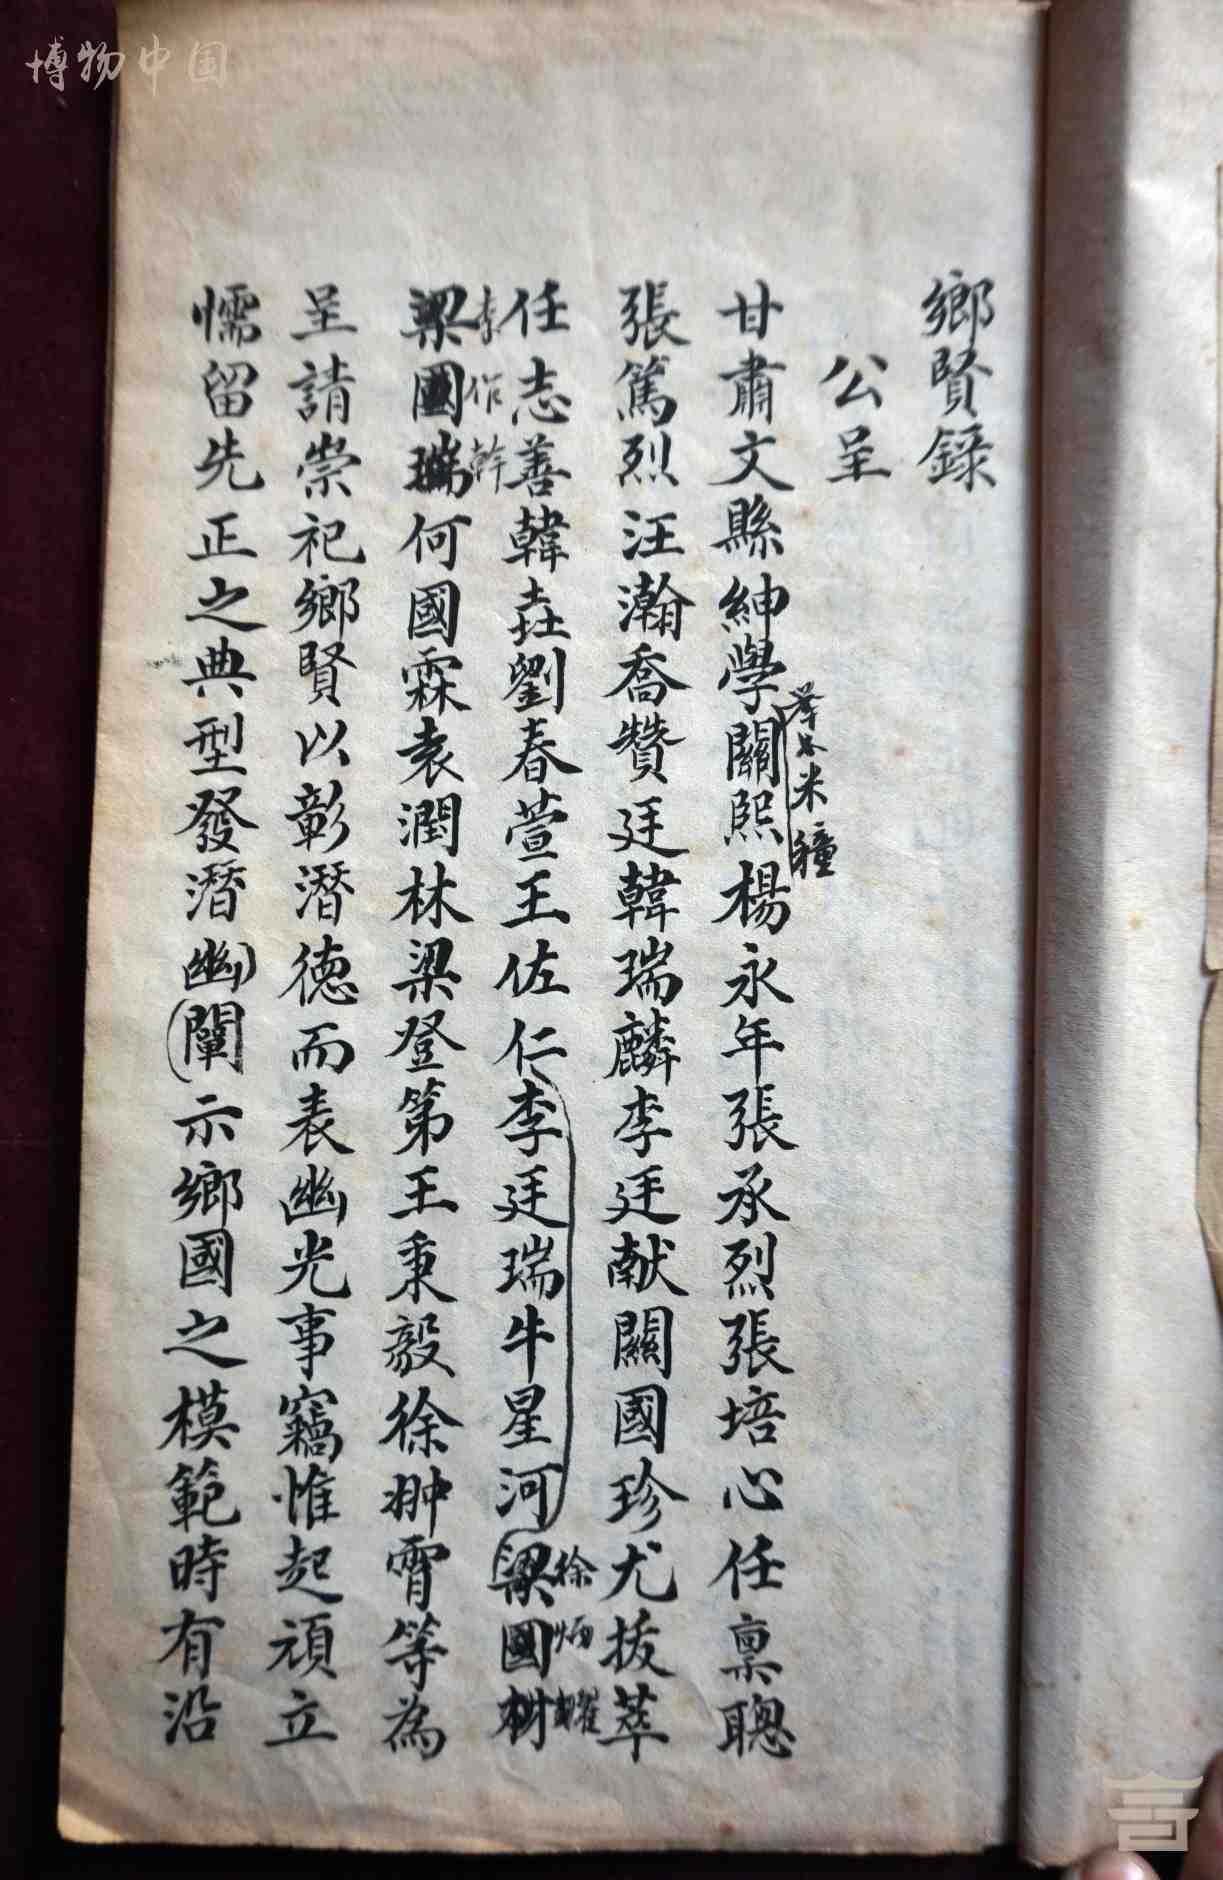 博物中国
鄉賢錄
公呈
甘肅文縣紳學關熙楊永年張承烈張培心任稟聰
米穜
張篤烈汪瀚喬贊廷韓瑞麟李廷献關國珍尤拔萃
任志善韓垚劉春萱王佐仁李廷瑞牛星河梁國樹
徐炳耀
李作幹
梁國瑞何國霖袁潤林梁登第王秉毅徐翀霄等為
呈請崇祀鄉賢以彰潛德而表幽光事竊惟起頑立
懦留先正之典型發潛幽闡示鄉國之模範時有沿